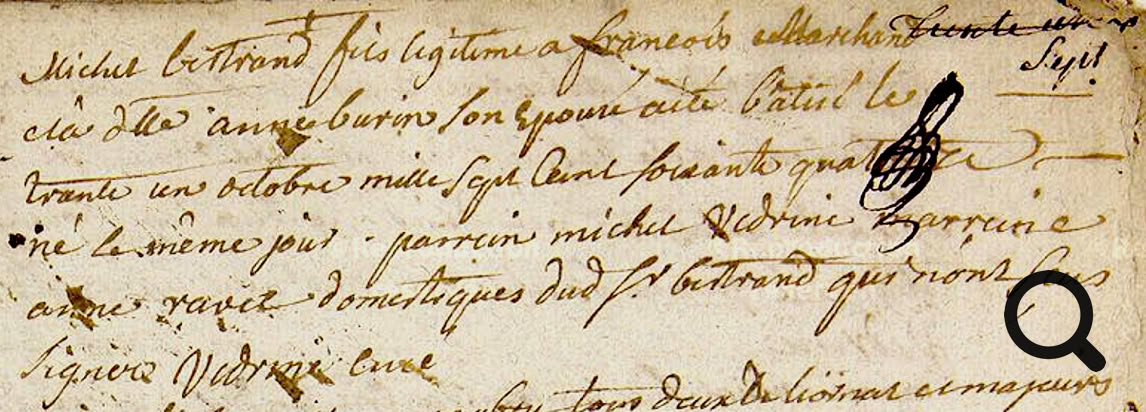 Michel bertrand fils legitime a francois Marchand trente un
Sept
& a dlle anne burin son Epouse acté bâtisé le
trante un octobre mille sept Cent soixante quatorze
né le même jour - parrein michel Vedrine marreine
anne ravel domestiques dud Sr bertrand qui n'ont sçus
signer Vedrine curé
tous deux de liornat et majeurs